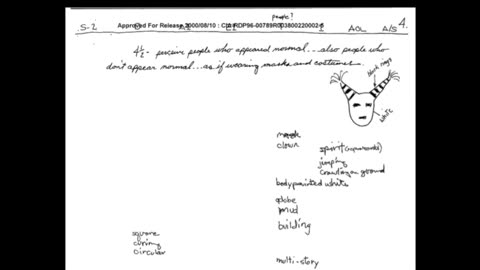 people?
S-2 Approved For Release 2000/08/10 : CIA-RDP96-00789R003800220002-5 I AOL A/S 4.
4½ - perceive people who appeared normal...also people who
don't appear normal...as if wearing masks and costumes.
black rings
white
mask
clown spirit (represents)
jumping
crawling on ground
body painted white
adobe
mud
building
square
curving
circular
multi-story